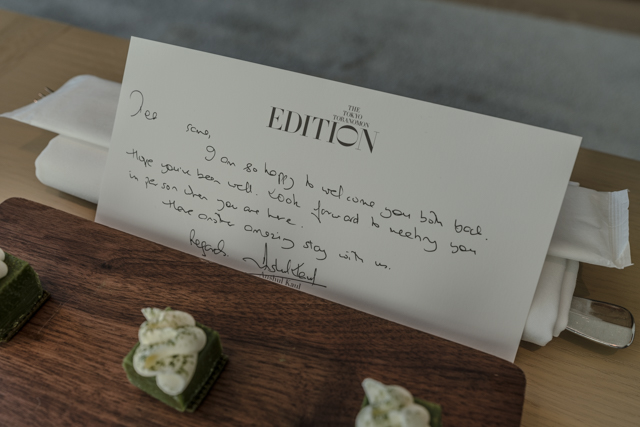 THE
TOKYO
TORANOMON
EDITION
Jee sans,
I am so happy to welcome you both back.
Hope you've been well. Look forward to meeting you
in person when you are here.
Have another amazing stay with us.
Regards,
Anshul Kaul